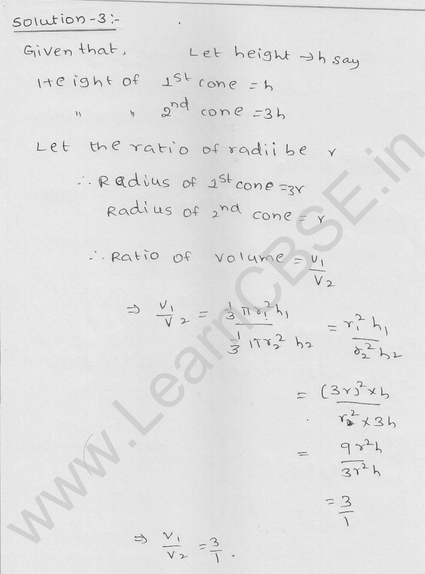 Solution-3:-
Given that, Let height → h say
Height of 1st cone = h
" " 2nd cone = 3h
Let the ratio of radii be r
∴ Radius of 1st cone = 3r
Radius of 2nd cone = r
∴ Ratio of volume = V1/V2
⇒ V1/V2 = (1/3 πr1² h1)/(1/3 πr2² h2) = r1² h1/r2² h2
= (3r)² × h/r² × 3h
= 9r²h/3r²h
= 3/1
⇒ V1/V2 = 3/1.
www.LearnCBSE.in